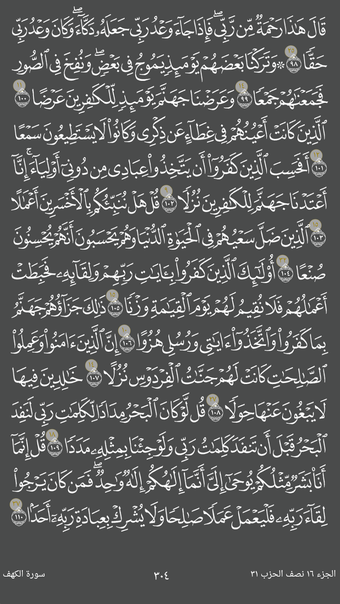 قَالَ هَٰذَا رَحْمَةٌ مِّن رَّبِّي ۖ فَإِذَا جَآءَ وَعْدُ رَبِّي جَعَلَهُۥ دَكَّآءَ ۖ وَكَانَ وَعْدُ رَبِّي
حَقًّا ٩٨ ۞ وَتَرَكْنَا بَعْضَهُمْ يَوْمَئِذٍ يَمُوجُ فِي بَعْضٍ ۖ وَنُفِخَ فِي ٱلصُّورِ
فَجَمَعْنَٰهُمْ جَمْعًا ٩٩ وَعَرَضْنَا جَهَنَّمَ يَوْمَئِذٍ لِّلْكَٰفِرِينَ عَرْضًا ١٠٠
ٱلَّذِينَ كَانَتْ أَعْيُنُهُمْ فِي غِطَآءٍ عَن ذِكْرِي وَكَانُوا۟ لَا يَسْتَطِيعُونَ سَمْعًا
١٠١ أَفَحَسِبَ ٱلَّذِينَ كَفَرُوٓا۟ أَن يَتَّخِذُوا۟ عِبَادِي مِن دُونِيٓ أَوْلِيَآءَ ۚ إِنَّآ
أَعْتَدْنَا جَهَنَّمَ لِلْكَٰفِرِينَ نُزُلًا ١٠٢ قُلْ هَلْ نُنَبِّئُكُم بِٱلْأَخْسَرِينَ أَعْمَٰلًا
١٠٣ ٱلَّذِينَ ضَلَّ سَعْيُهُمْ فِي ٱلْحَيَوٰةِ ٱلدُّنْيَا وَهُمْ يَحْسَبُونَ أَنَّهُمْ يُحْسِنُونَ
صُنْعًا ١٠٤ أُو۟لَٰٓئِكَ ٱلَّذِينَ كَفَرُوا۟ بِـَٔايَٰتِ رَبِّهِمْ وَلِقَآئِهِۦ فَحَبِطَتْ
أَعْمَٰلُهُمْ فَلَا نُقِيمُ لَهُمْ يَوْمَ ٱلْقِيَٰمَةِ وَزْنًا ١٠٥ ذَٰلِكَ جَزَآؤُهُمْ جَهَنَّمُ
بِمَا كَفَرُوا۟ وَٱتَّخَذُوٓا۟ ءَايَٰتِي وَرُسُلِي هُزُوًا ١٠٦ إِنَّ ٱلَّذِينَ ءَامَنُوا۟ وَعَمِلُوا۟
ٱلصَّٰلِحَٰتِ كَانَتْ لَهُمْ جَنَّٰتُ ٱلْفِرْدَوْسِ نُزُلًا ١٠٧ خَٰلِدِينَ فِيهَا
لَا يَبْغُونَ عَنْهَا حِوَلًا ١٠٨ قُل لَّوْ كَانَ ٱلْبَحْرُ مِدَادًا لِّكَلِمَٰتِ رَبِّي لَنَفِدَ
ٱلْبَحْرُ قَبْلَ أَن تَنفَدَ كَلِمَٰتُ رَبِّي وَلَوْ جِئْنَا بِمِثْلِهِۦ مَدَدًا ١٠٩ قُلْ إِنَّمَآ
أَنَا۠ بَشَرٌ مِّثْلُكُمْ يُوحَىٰٓ إِلَيَّ أَنَّمَآ إِلَٰهُكُمْ إِلَٰهٌ وَٰحِدٌ ۖ فَمَن كَانَ يَرْجُوا۟
لِقَآءَ رَبِّهِۦ فَلْيَعْمَلْ عَمَلًا صَٰلِحًا وَلَا يُشْرِكْ بِعِبَادَةِ رَبِّهِۦٓ أَحَدًۢا ١١٠
الجزء ١٦ نصف الحزب ٣١ ٣٠٤ سورة الكهف